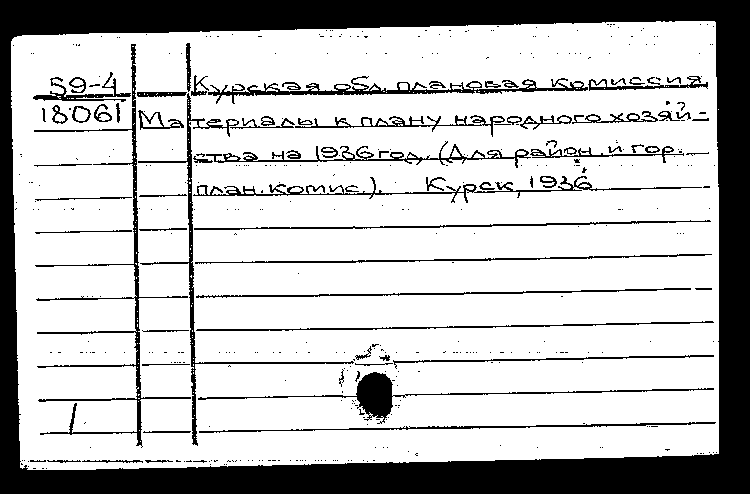 59-4 Курская обл. плановая комиссия
18061 Материалы к плану народного хозяй-
ства на 1936 год. (Для район. и гор.
план. комис.). Курск, 1936
1